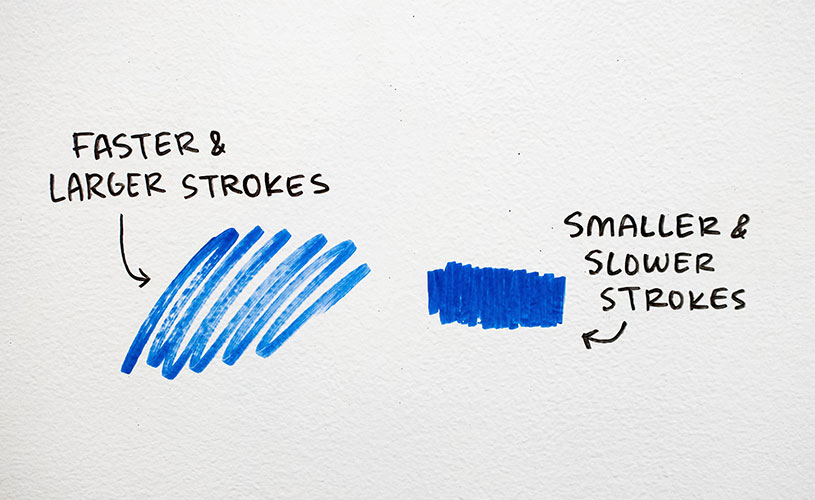 FASTER &
LARGER STROKES
SMALLER &
SLOWER
STROKES